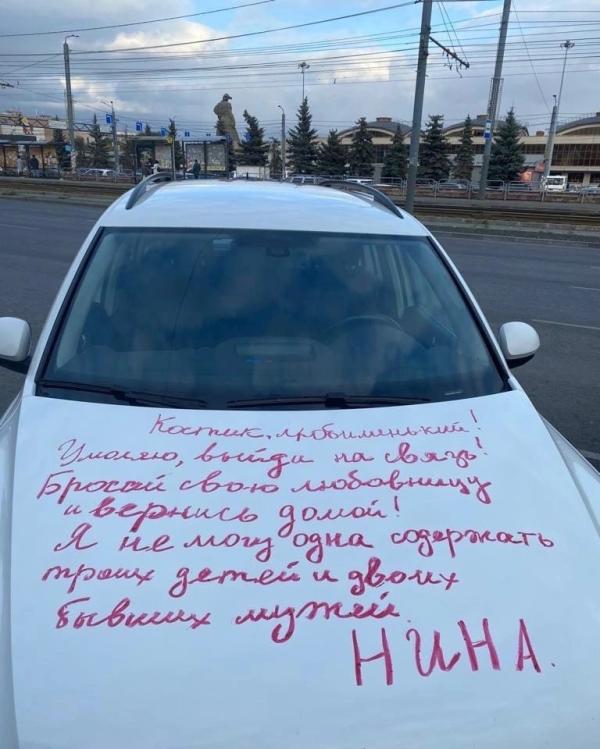 Костик, любименький!
Умоляю, выйди на связь!
Бросай свою любовницу
и вернись домой!
Я не могу одна содержать
троих детей и двоих
бывших мужей.
НИНА.